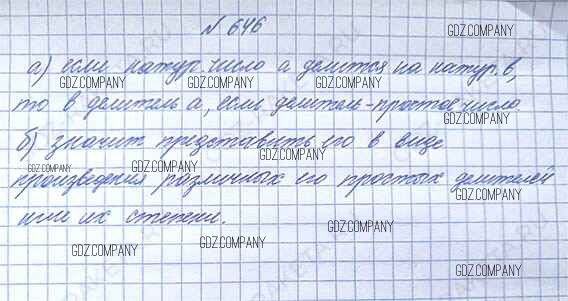 № 646
а) если натур. число а делится на натур. в,
то в делитель а, если делитель - простое число
б) значит представить его в виде
произведения различных его простых делителей
или их степени.
GDZ.COMPANY
GDZ.COMPANY
GDZ.COMPANY
GDZ.COMPANY
GDZ.COMPANY
GDZ.COMPANY
GDZ.COMPANY
GDZ.COMPANY
GDZ.COMPANY
GDZ.COMPANY
GDZ.COMPANY
GDZ.COMPANY
GDZ.COMPANY
GDZ.COMPANY